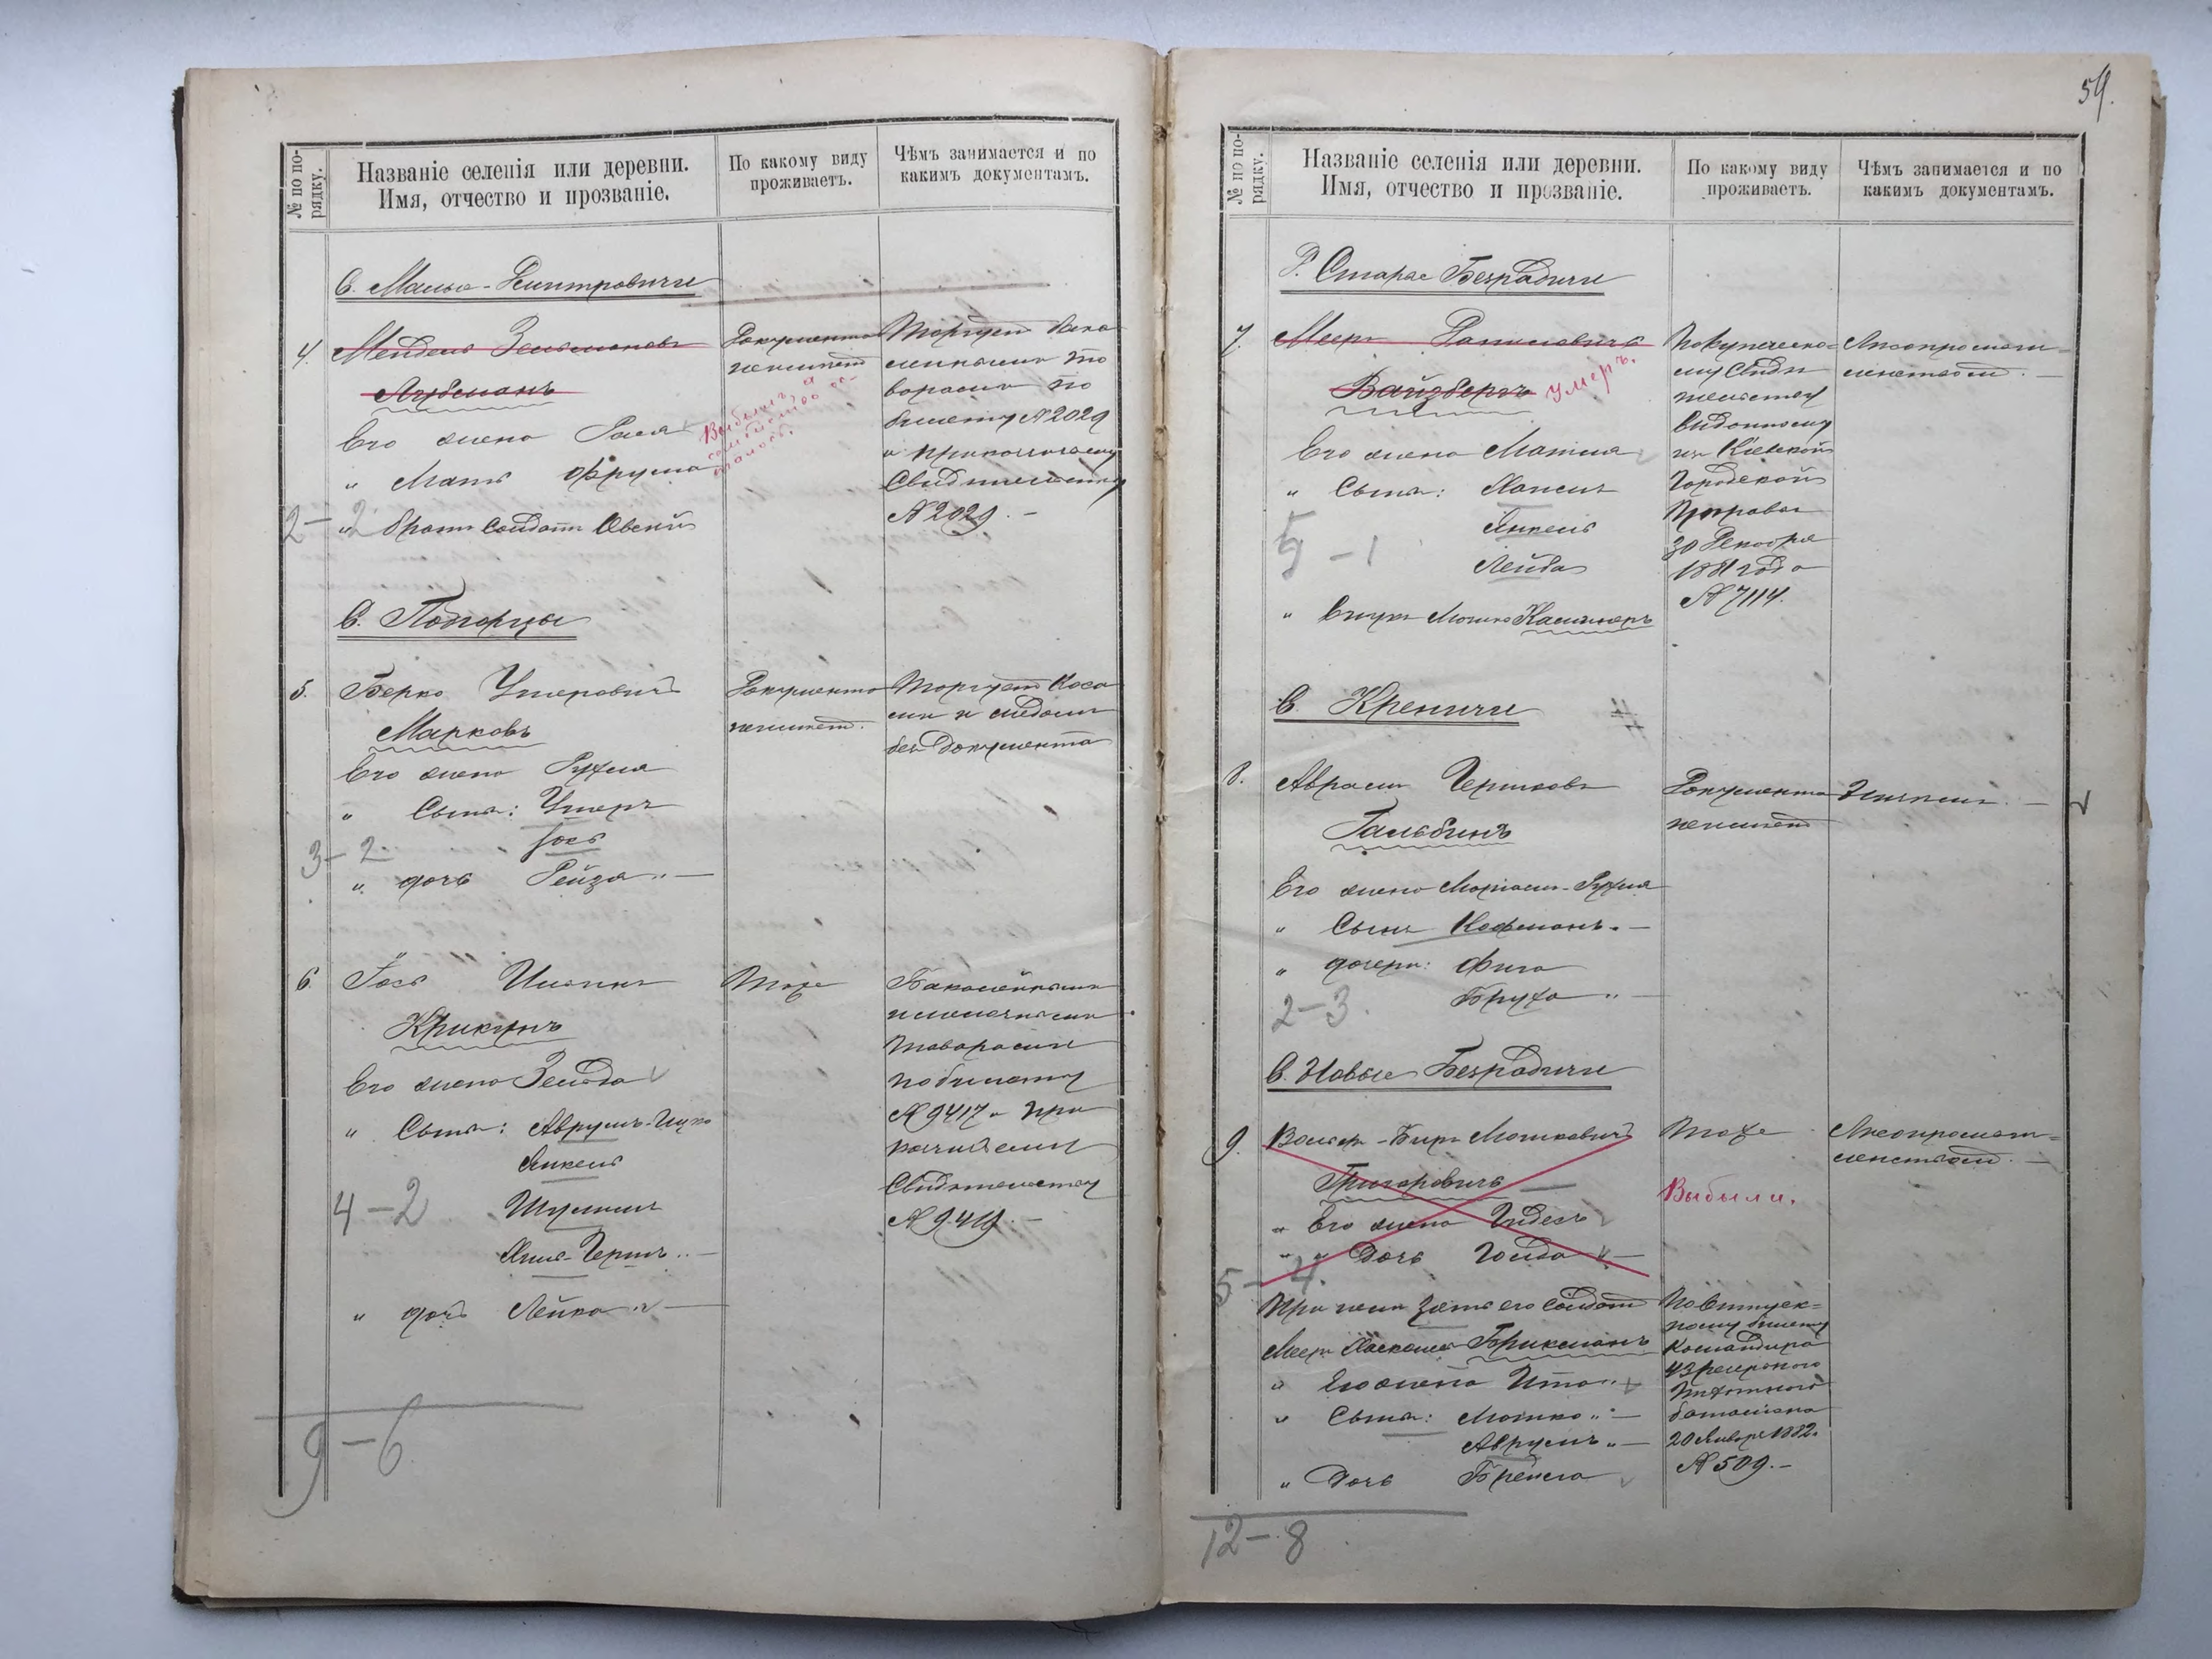 № по по-
рядку.
Названіе селенія или деревни.
Имя, отчество и прозваніе.
По какому виду
проживаетъ.
Чѣмъ занимается и по
какимъ документамъ.
С. Мало-Дмитровичи
4. Мендель Зельмановъ
Его жена Рася
" Мать Фрума
2-2
" братъ Солдатъ Овсей
Документа
неимѣетъ
Выбылъ, а
семейство ос-
талось.
Торгуетъ бака
лейными то
варами по
билету № 2029
и приказчичьему
Свидѣтельству
№ 2029.-
С. Подгорцы
5. Берко Умеровичъ
Марковъ
Его жена Рухля
" Сыны: Умеръ
Іось
3-2
" дочь Рейза " —
Документа
неимѣетъ.
Торгуетъ Коса
ми и медомъ
безъ документа
6. Іось Ицковъ
Крикунъ
Его жена Зельда
" Сыны: Аврумъ-Ицко
Янкель
4-2
Шулимъ
Хаим-Гершъ " —
" дочь Лейка " —
Тоже
Бакалейными
и мелочными
товарами
по билету
№ 9417 и при
казчичьему
Свидѣтельству
№ 9419.-
9-6
54.
№ по по-
рядку.
Названіе селенія или деревни.
Имя, отчество и прозваніе.
По какому виду
проживаетъ.
Чѣмъ занимается и по
какимъ документамъ.
Д. Старые Безрадичи
7. Мееръ
Вайзбергъ умеръ.
Его жена Матля
" Сыны:
Янкель
5-1
Лейба
" Внукъ Мошко
По купческо-
му Свидѣ
тельству
выданному
изъ Кіевской
Городской
Управы
30 Декабря
1881 года
№ 7114.
Лѣсопромыш-
ленностью. —
С. Креничи
8. Аврамъ Гершковъ
Гальбинъ
Его жена Маріамъ-Рухля
" Сынъ Кофманъ. —
" дочери: Фига
Бруха " —
2-3.
Документа
неимѣетъ
С. Новые Безрадичи
9. Волько-Беръ Мошковичъ
Григоровичъ —
" Его жена Гидесъ
" " Дочь Голда " —
5-4.
При немъ зять его Солдатъ
Мееръ Хаскелевъ Брикманъ
" Его жена Ита "
" Сыны: Мошко " —
Аврумъ " —
" Дочь Бренла
Тоже
Выбыли.
По Отпуск-
ному билету
Командира
43 резервнаго
пѣхотнаго
баталіона
20 Января 1882.
№ 509.-
Лѣсопромыш-
ленностью. —
12-8